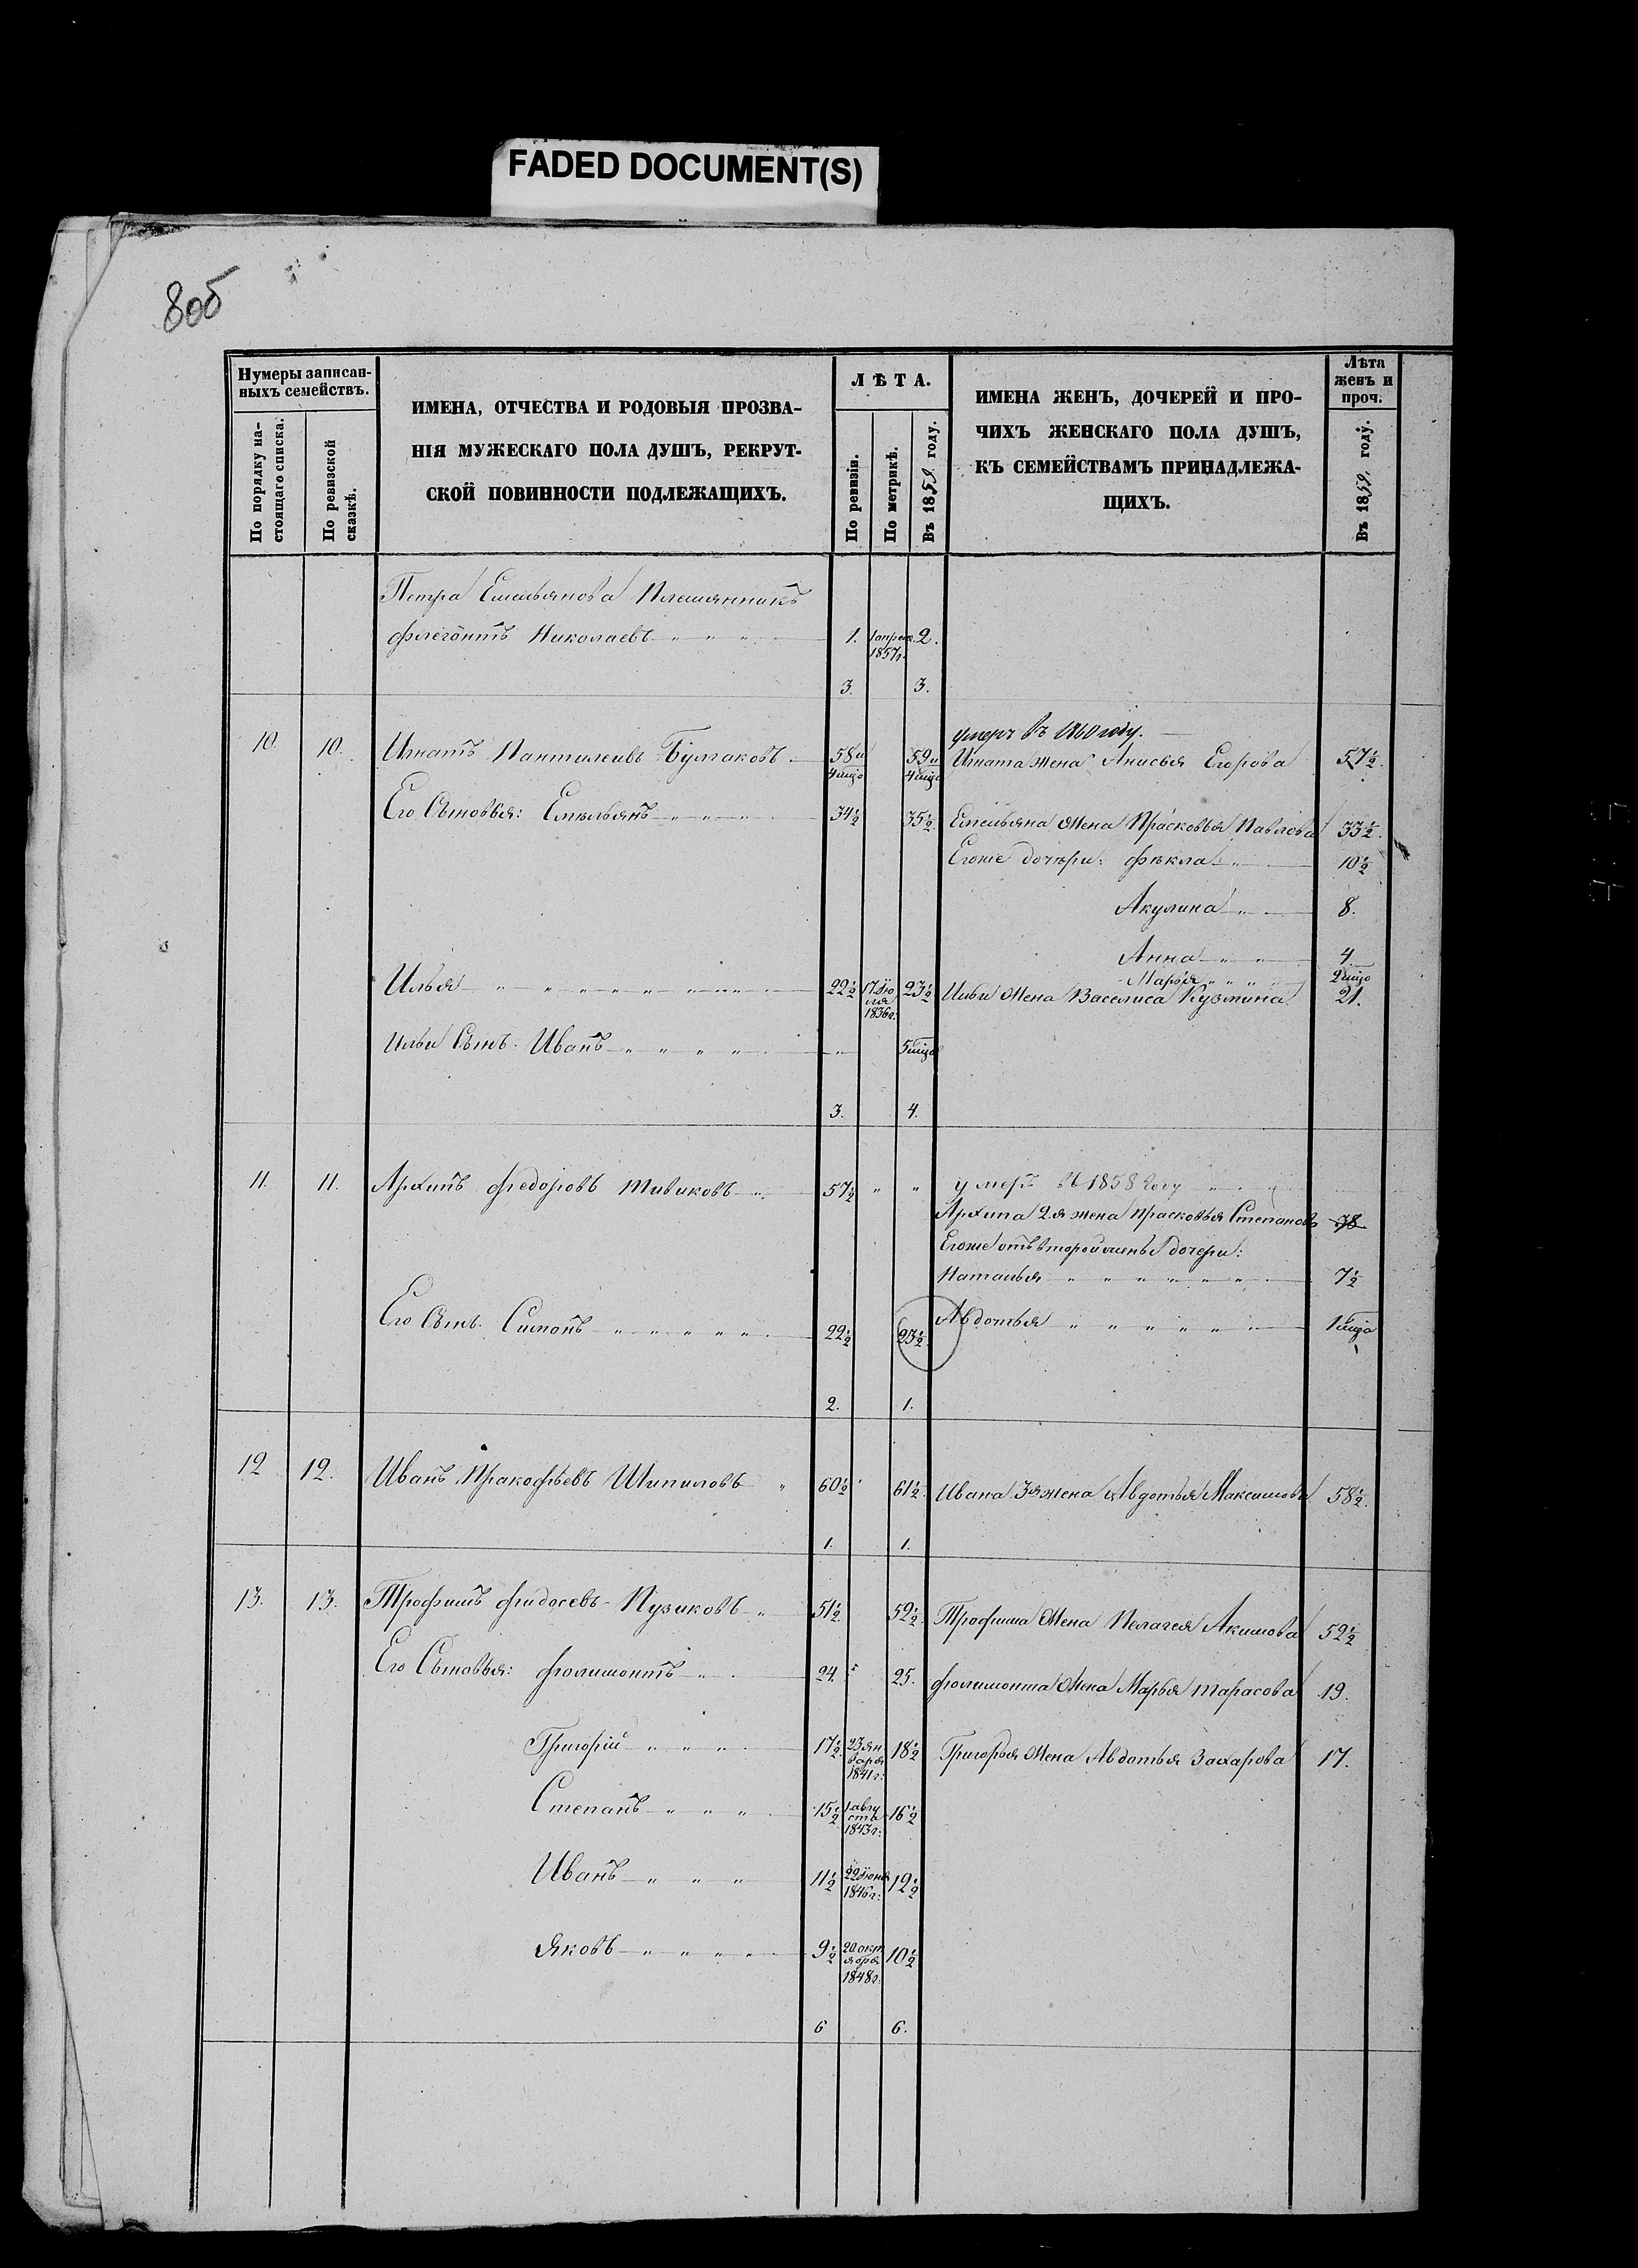 FADED DOCUMENT(S)
80об
Нумеры записан-
ныхъ семействъ.
По порядку на-
стоящаго списка.
По ревизской
сказкѣ.
ИМЕНА, ОТЧЕСТВА И РОДОВЫЯ ПРОЗВА-
НІЯ МУЖЕСКАГО ПОЛА ДУШЪ, РЕКРУТ-
СКОЙ ПОВИННОСТИ ПОДЛЕЖАЩИХЪ.
ЛѢТА.
По ревизіи.
По метрикѣ.
Въ 1859. году.
ИМЕНА ЖЕНЪ, ДОЧЕРЕЙ И ПРО-
ЧИХЪ ЖЕНСКАГО ПОЛА ДУШЪ,
КЪ СЕМЕЙСТВАМЪ ПРИНАДЛЕЖА-
ЩИХЪ.
Лѣта
женъ и
проч.
Въ 1859, году.
Петра Емельянова Племянникъ
Флегонтъ Николаевъ 1. 1 апрел. 1857г. 2.
3. 3.
умеръ въ 1860 году.
10. 10. Игнатъ Пантилеивъ Булгаковъ 58 и 4 мѣц. 59 и 4 мѣц. Игната жена Анисья Егорова 57½.
Его Сыновья: Емельянъ 34½ 35½. Емельяна Жена Прасковья Павлова 33½.
Егоже дочери: Фекла 10½
Акулина 8.
Анна 4
Марья 2 мѣц.
Илья 22½ 17 Ію ля 1836г. 23½ Ильи Жена Василиса Кузмина 21.
Ильи Сынъ. Иванъ 5 мѣц.
3. 4.
11. 11. Архипъ Федоровъ Тивиковъ 57½ умеръ въ 1858 году
Архипа 2.я жена Прасковья Степанова 38
Егоже отъ второй жены дочери:
Наталья 7½
Его Сынъ. Симонъ 22½ 23½ Авдотья 1 мѣц.
2. 1.
12 12. Иванъ Пракофьевъ Шипиловъ 60½ 61½. Ивана 3я жена Авдотья Максимова 58½.
1. 1.
13. 13. Трофимъ Фидосевъ Пузиковъ 51½ 52½ Трофима Жена Пелагея Акимова 52½
Его Сыновья: Фолимонтъ 24. 25. Фолимонта Жена Марья Тарасова 19.
Григорій 17½ 23 ян варя 1841г: 18½ Григорья Жена Авдотья Захарова 17.
Степанъ 15½ 1 авгу ста 1843г: 16½
Иванъ 11½ 22 Іюня 1846г: 12½
Яковъ 9½ 20 окт ября 1848г: 10½
6 6.